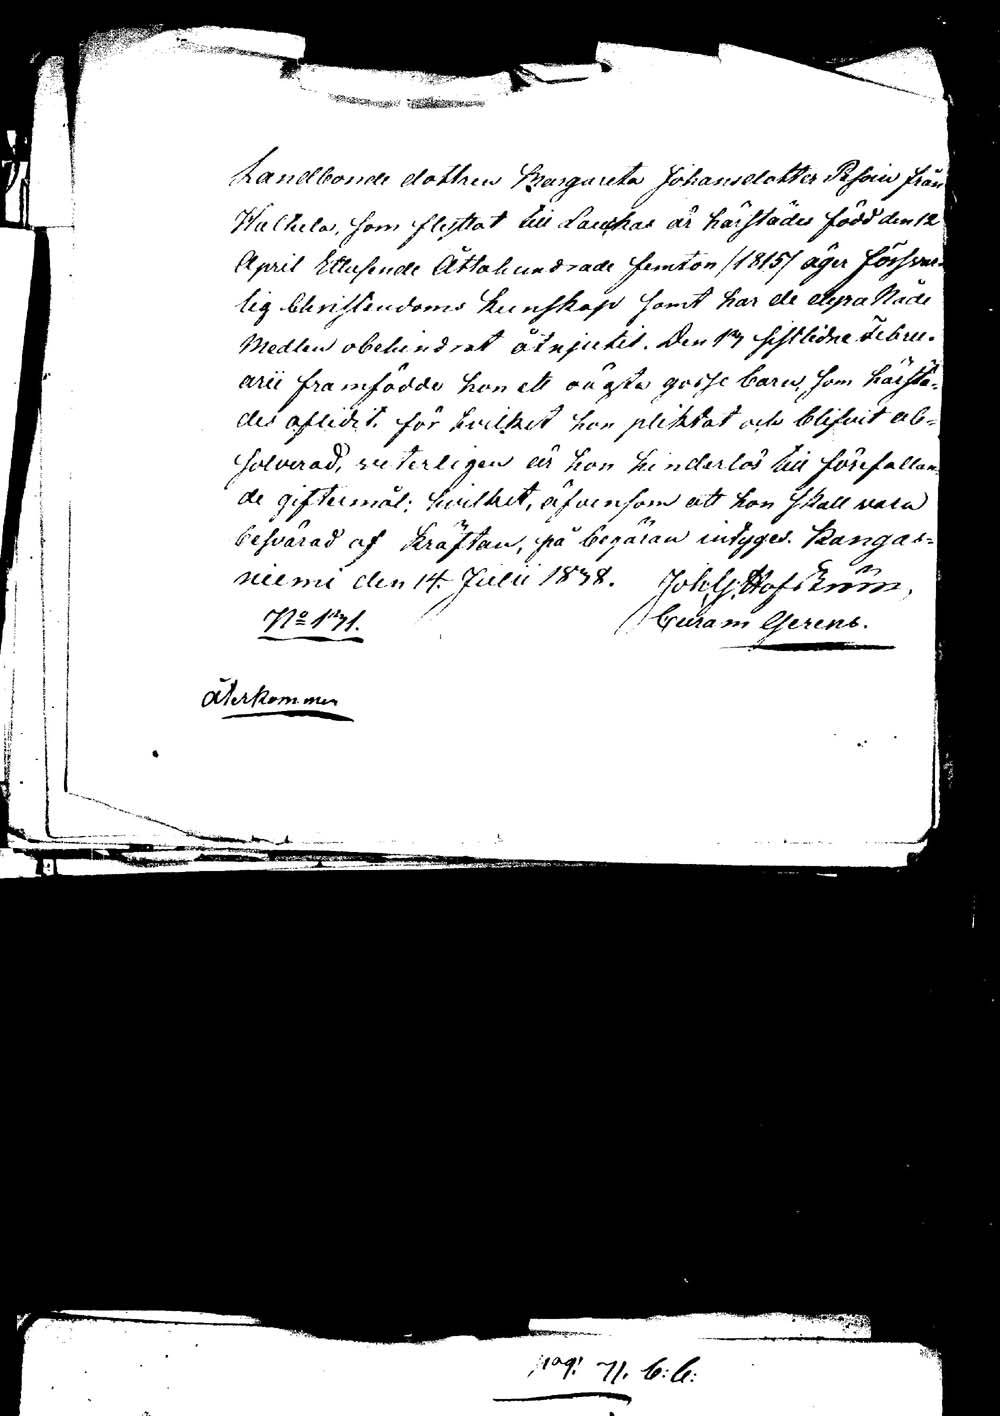 Landbonde dottren Margareta Johansdotter Pesoin från
Halhela, som flyttat till Laukas är härstädes född den 12
April Ettusende Åttahundrade femton /1815/ äger försvar-
lig Christendoms kunskap samt har de dyra Nåde
Medlen obehindrat åtnjutit. Den 17 sistledne Febru-
arii framfödde hon ett oägta gosse barn, som härstä-
des aflidit, för hvilket hon pliktat och blifvit ab-
solverad, veterligen är hon hinderlös till förefallan-
de giftermål; hvilket, äfvensom att hon skall vara
besvärad af kräftan, på begäran intyges. Kangas-
niemi den 14 Julii 1838. Joh. G. Hofström,
No 171. Curam Gerens.
återkommer
pag: 71. C:B: